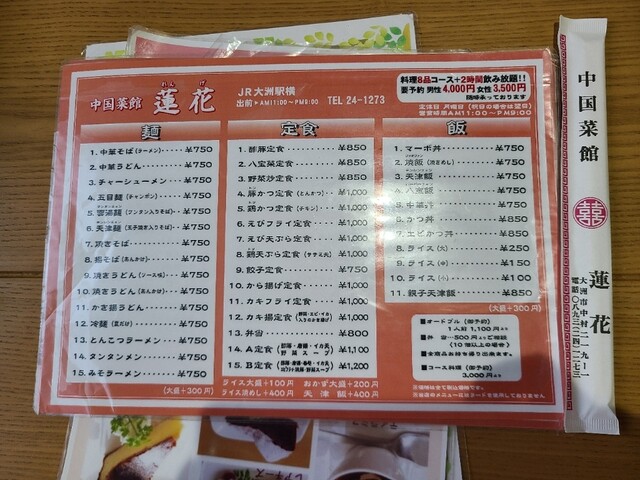 中国菜館 蓮花
れんげ
JR大洲駅横
出前▶AM11:00～PM9:00
TEL 24-1273
料理8品コース+2時間飲み放題!!
要予約 男性4,000円 女性3,500円
随時承っております
定休日 月曜日（祝日の場合は翌日）
営業時間AM11:00～PM9:00
麺
1. 中華そば（ラーメン）‥‥¥750
2. 中華うどん‥‥¥750
3. チャーシューメン‥‥¥750
4. 五目麺（チャンポン）‥‥¥750
5. 雲呑麺（ワンタン入りそば）‥‥¥750
6. 天津麺（玉子焼き入りそば）‥‥¥750
7. 焼きそば‥‥¥750
8. 揚そば（あんかけ）‥‥¥750
9. 焼きうどん（ソース味）‥‥¥750
10. 焼うどん（あんかけ）‥‥¥750
11. かき揚うどん‥‥¥750
12. 冷麺（夏だけ）‥‥¥750
13. とんこつラーメン‥‥¥750
14. タンタンメン‥‥¥750
15. みそラーメン‥‥¥750
（大盛+300円）
定食
1. 酢豚定食‥‥¥850
2. 八宝菜定食‥‥¥850
3. 野菜炒定食‥‥¥850
4. 豚かつ定食（とんかつ）‥‥¥1,000
5. 鶏かつ定食（チキン）‥‥¥1,000
6. えびフライ定食‥‥¥1,000
7. えび天ぷら定食‥‥¥1,000
8. 鶏天ぷら定食（ササミ天）‥‥¥1,000
9. 餃子定食‥‥¥750
10. から揚げ定食‥‥¥1,000
11. カキフライ定食‥‥¥1,000
12. カキ揚定食（野菜・エビ・イカ入りのかき揚げ）‥‥¥1,000
13. 弁当‥‥¥800
14. A定食‥‥¥1,100
15. B定食‥‥¥1,200
ライス大盛+100円 おかず大盛+200円
ライス焼めし+400円 天津飯+400円
飯
1. マーボ丼‥‥¥750
2. 焼飯（焼きめし）‥‥¥750
3. 天津飯‥‥¥750
4. 八宝飯‥‥¥750
5. 中華丼‥‥¥750
6. かつ丼‥‥¥850
7. エビかつ丼‥‥¥850
8. ライス（大）‥‥¥250
9. ライス（中）‥‥¥150
10. ライス（小）‥‥¥100
11. 親子天津飯‥‥¥850
（大盛+300円）
■オードブル（御予約）
1人前1,100円より
■弁当‥‥500円よりご相談
（10個以上の場合）
■全商品お持ち帰り出来ます。
■コース料理（御予約）
3,000円より
中国菜館
囍
蓮花
大洲市中村二一九ー一
電話〇八九三（二四）一二七三